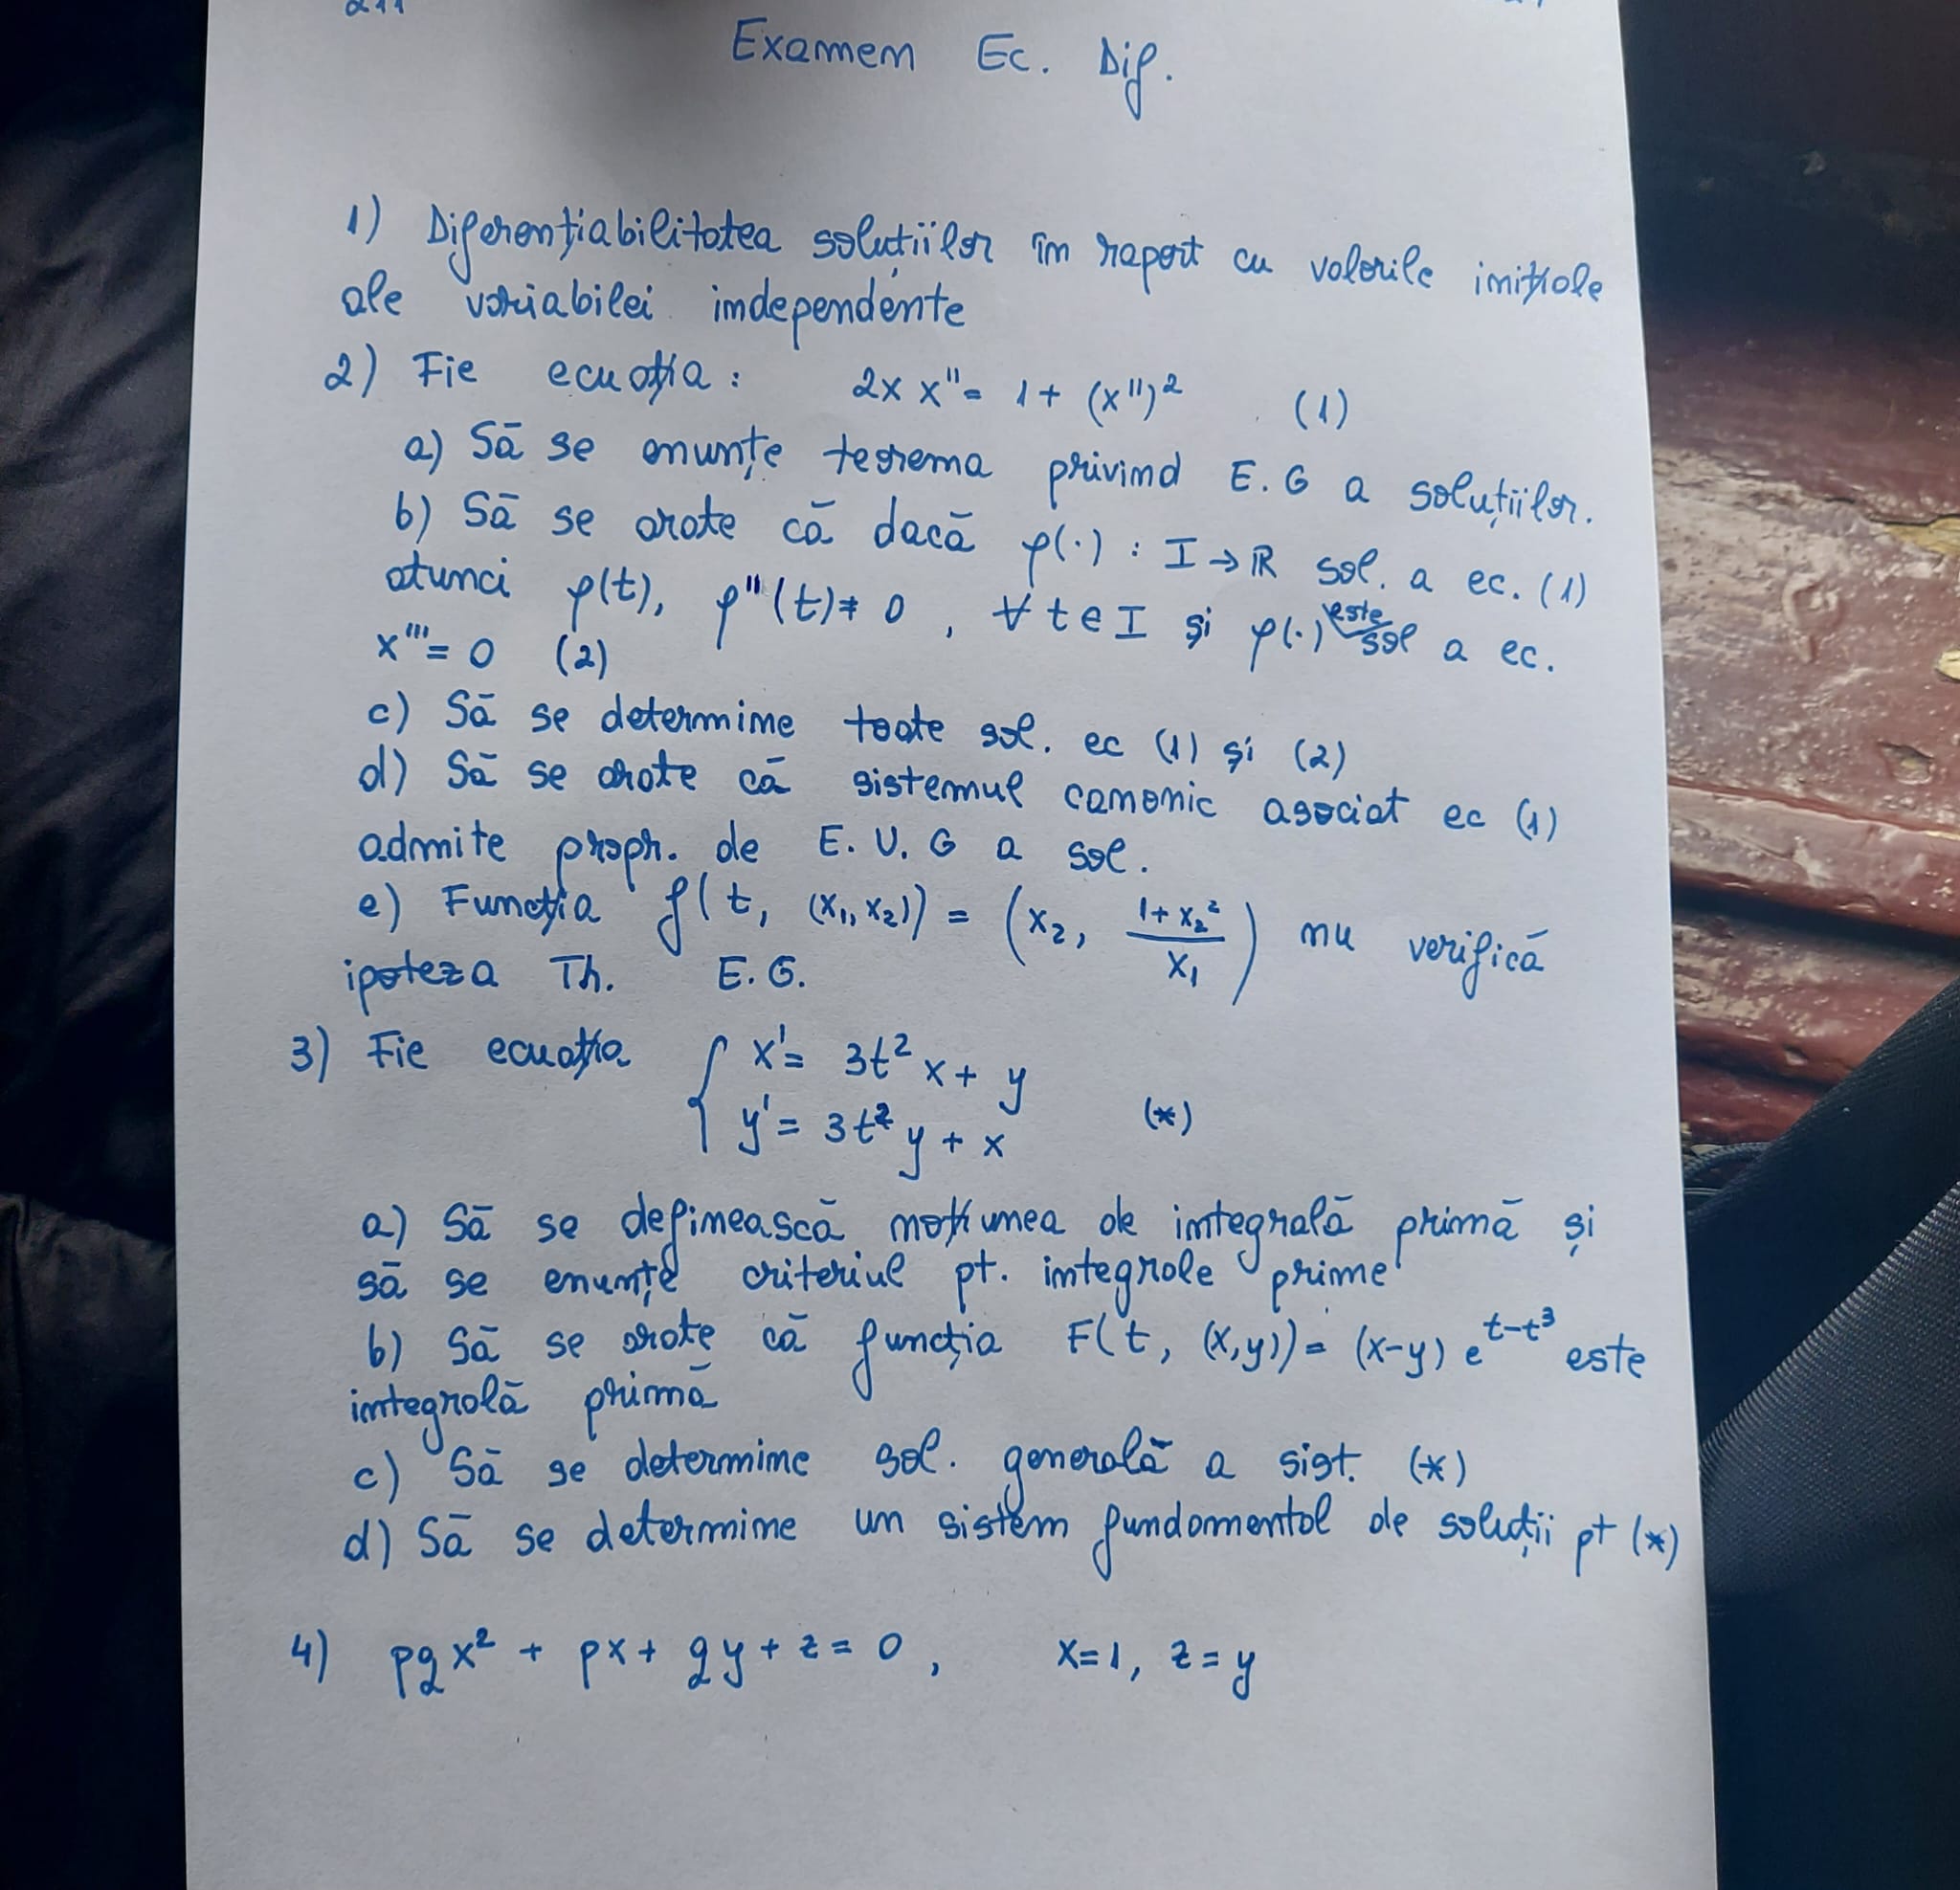 Examen Ec. Dif.
1) Diferențiabilitatea soluțiilor în raport cu valorile inițiale
ale variabilei independente
2) Fie ecuația: 2x x'' = 1 + (x'')² (1)
a) Să se enunțe teorema privind E.G a soluțiilor.
b) Să se arate că dacă φ(·) : I → ℝ sol. a ec. (1)
atunci φ(t), φ''(t) ≠ 0, ∀ t ∈ I și φ(·) este sol a ec.
x''' = 0 (2)
c) Să se determine toate sol. ec (1) și (2)
d) Să se arate că sistemul canonic asociat ec (1)
admite propr. de E.U.G a sol.
e) Funcția f(t, (x₁, x₂)) = (x₂, (1 + x₂²)/x₁) nu verifică
ipoteza Th. E.G.
3) Fie ecuația { x' = 3t² x + y
y' = 3t² y + x (*)
a) Să se definească noțiunea de integrală primă și
să se enunțe criteriul pt. integrale prime
b) Să se arate că funcția F(t, (x,y)) = (x-y) e^(t-t³) este
integrală primă
c) Să se determine sol. generală a sist. (*)
d) Să se determine un sistem fundamental de soluții pt (*)
4) pqx² + px + qy + z = 0, x=1, z=y